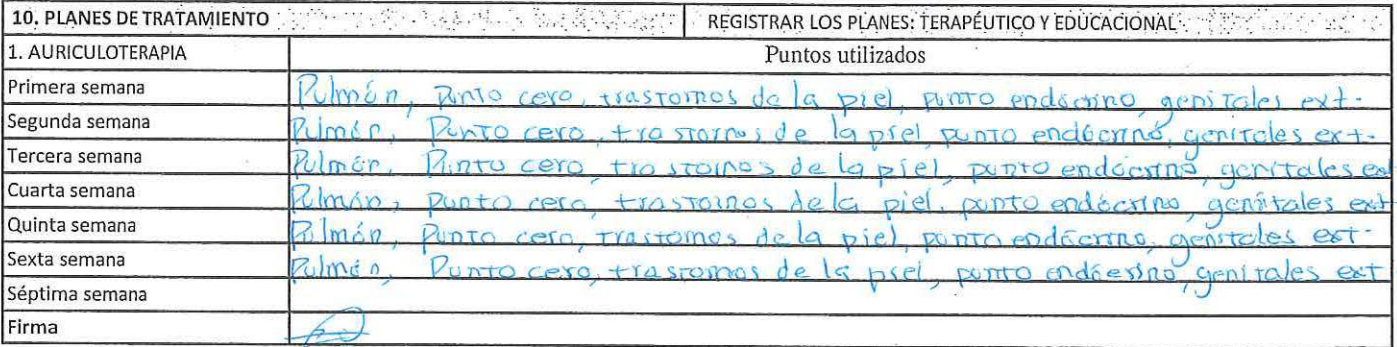 10. PLANES DE TRATAMIENTO REGISTRAR LOS PLANES: TERAPÉUTICO Y EDUCACIONAL
1. AURICULOTERAPIA Puntos utilizados
Primera semana Pulmón, Punto cero, trastornos de la piel, punto endócrino, genitales ext.
Segunda semana Pulmón, Punto cero, trastornos de la piel, punto endócrino, genitales ext.
Tercera semana Pulmón, Punto cero, trastornos de la piel, punto endócrino, genitales ext
Cuarta semana Pulmón, punto cero, trastornos de la piel, punto endócrino, genitales ext
Quinta semana Pulmón, Punto cero, trastornos de la piel, punto endócrino, genitales ext.
Sexta semana Pulmón, Punto cero, trastornos de la piel, punto endócrino, genitales ext
Séptima semana
Firma